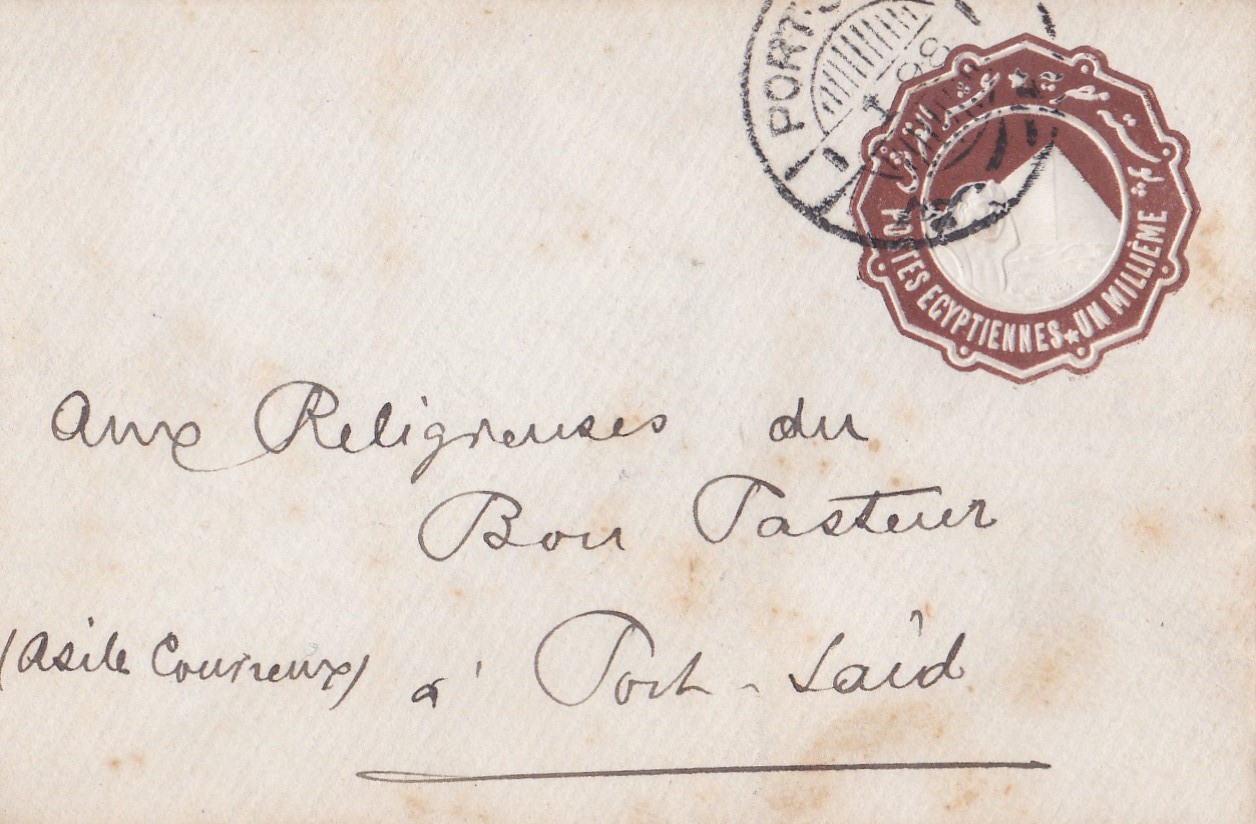 PORT-S
I 98
POSTES EGYPTIENNES ★ UN MILLIÈME
Aux Religieuses du
Bon Pasteur
(Asile Courreux) à Port-Saïd